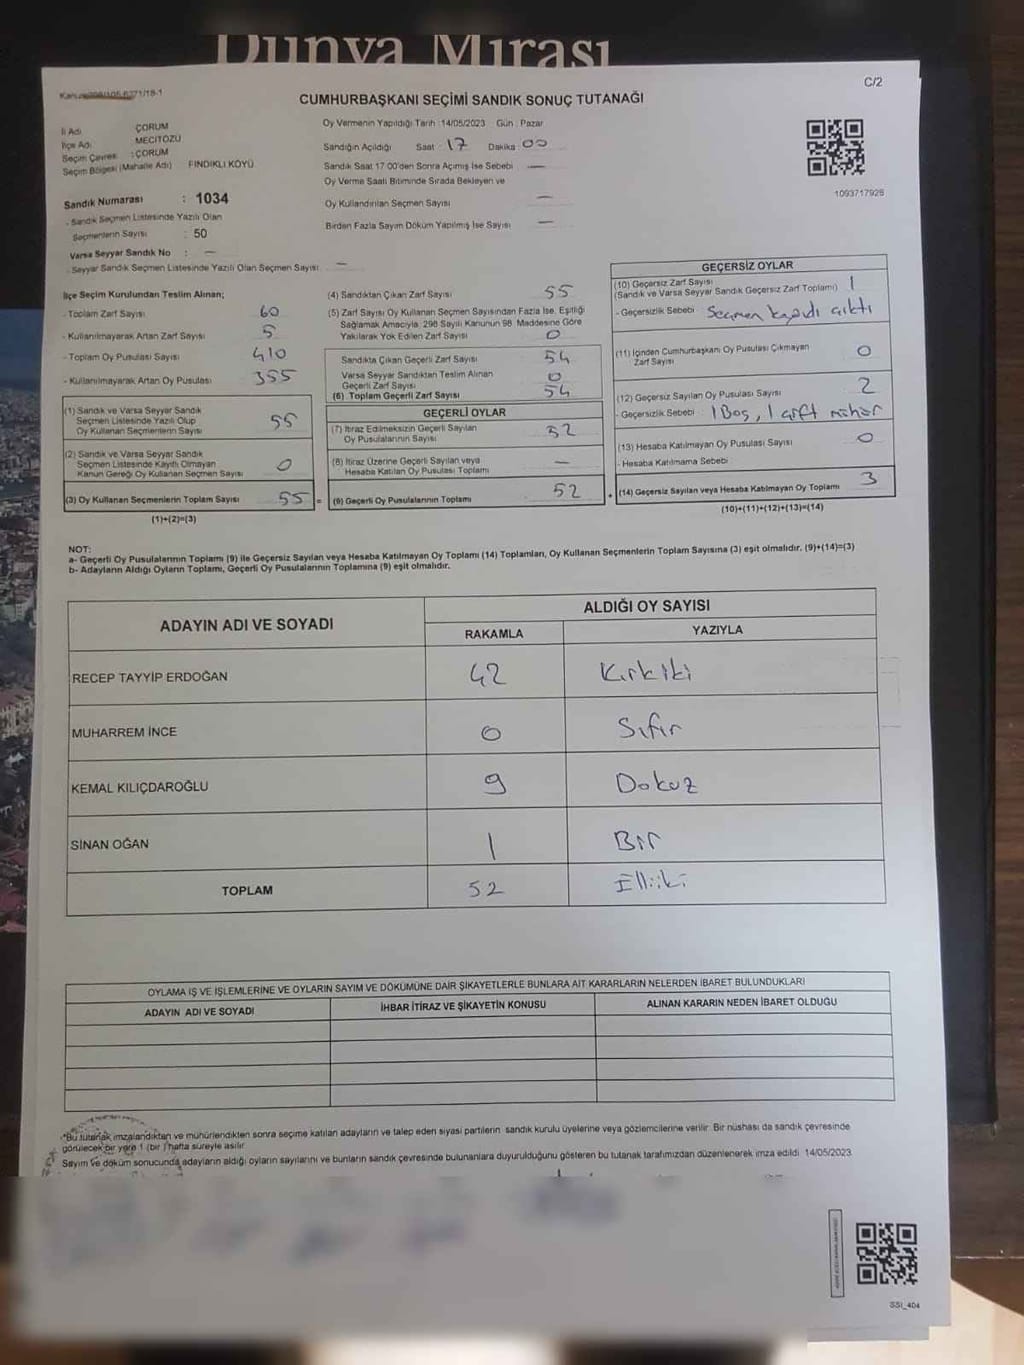 Dünya Mirası
C/2
CUMHURBAŞKANI SEÇİMİ SANDIK SONUÇ TUTANAĞI
İl Adı ÇORUM
İlçe Adı MECİTÖZÜ
Seçim Çevresi : ÇORUM
Seçim Bölgesi (Mahalle Adı) FINDIKLI KÖYÜ
Sandık Numarası : 1034
- Sandık Seçmen Listesinde Yazılı Olan
Seçmenlerin Sayısı : 50
Varsa Seyyar Sandık No : —
- Seyyar Sandık Seçmen Listesinde Yazılı Olan Seçmen Sayısı: —
Oy Vermenin Yapıldığı Tarih :14/05/2023 Gün : Pazar
Sandığın Açıldığı Saat : 17 Dakika : 00
Sandık Saat 17:00'den Sonra Açılmış İse Sebebi —
Oy Verme Saati Bitiminde Sırada Bekleyen ve
Oy Kullandırılan Seçmen Sayısı —
Birden Fazla Sayım Döküm Yapılmış İse Sayısı —
1093717928
İlçe Seçim Kurulundan Teslim Alınan;
- Toplam Zarf Sayısı 60
- Kullanılmayarak Artan Zarf Sayısı 5
- Toplam Oy Pusulası Sayısı 410
- Kullanılmayarak Artan Oy Pusulası 355
(1) Sandık ve Varsa Seyyar Sandık
Seçmen Listesinde Yazılı Olup
Oy Kullanan Seçmenlerin Sayısı 55
(2) Sandık ve Varsa Seyyar Sandık
Seçmen Listesinde Kayıtlı Olmayan
Kanun Gereği Oy Kullanan Seçmen Sayısı 0
(3) Oy Kullanan Seçmenlerin Toplam Sayısı 55 =
(1)+(2)=(3)
(4) Sandıktan Çıkan Zarf Sayısı 55
(5) Zarf Sayısı Oy Kullanan Seçmen Sayısından Fazla İse, Eşitliği
Sağlamak Amacıyla, 298 Sayılı Kanunun 98. Maddesine Göre
Yakılarak Yok Edilen Zarf Sayısı 0
Sandıkta Çıkan Geçerli Zarf Sayısı 54
Varsa Seyyar Sandıktan Teslim Alınan
Geçerli Zarf Sayısı 0
(6) Toplam Geçerli Zarf Sayısı 54
GEÇERLİ OYLAR
(7) İtiraz Edilmeksizin Geçerli Sayılan
Oy Pusulalarının Sayısı 52
(8) İtiraz Üzerine Geçerli Sayılan veya
Hesaba Katılan Oy Pusulası Toplamı —
(9) Geçerli Oy Pusulalarının Toplamı 52 +
GEÇERSİZ OYLAR
(10) Geçersiz Zarf Sayısı
(Sandık ve Varsa Seyyar Sandık Geçersiz Zarf Toplamı) 1
- Geçersizlik Sebebi : Seçmen kapıdı çıktı
(11) İçinden Cumhurbaşkanı Oy Pusulası Çıkmayan
Zarf Sayısı 0
(12) Geçersiz Sayılan Oy Pusulası Sayısı 2
- Geçersizlik Sebebi : 1 Boş, 1 çift mühür
(13) Hesaba Katılmayan Oy Pusulası Sayısı 0
- Hesaba Katılmama Sebebi
(14) Geçersiz Sayılan veya Hesaba Katılmayan Oy Toplamı 3
(10)+(11)+(12)+(13)=(14)
NOT:
a- Geçerli Oy Pusulalarının Toplamı (9) ile Geçersiz Sayılan veya Hesaba Katılmayan Oy Toplamı (14) Toplamları, Oy Kullanan Seçmenlerin Toplam Sayısına (3) eşit olmalıdır. (9)+(14)=(3)
b- Adayların Aldığı Oyların Toplamı, Geçerli Oy Pusulalarının Toplamına (9) eşit olmalıdır.
ADAYIN ADI VE SOYADI ALDIĞI OY SAYISI
RAKAMLA YAZIYLA
RECEP TAYYİP ERDOĞAN 42 Kırkiki
MUHARREM İNCE 0 Sıfır
KEMAL KILIÇDAROĞLU 9 Dokuz
SİNAN OĞAN 1 Bir
TOPLAM 52 Elliiki
OYLAMA İŞ VE İŞLEMLERİNE VE OYLARIN SAYIM VE DÖKÜMÜNE DAİR ŞİKAYETLERLE BUNLARA AİT KARARLARIN NELERDEN İBARET BULUNDUKLARI
ADAYIN ADI VE SOYADI İHBAR İTİRAZ VE ŞİKAYETİN KONUSU ALINAN KARARIN NEDEN İBARET OLDUĞU
*Bu tutanak imzalandıktan ve mühürlendikten sonra seçime katılan adayların ve talep eden siyasi partilerin sandık kurulu üyelerine veya gözlemcilerine verilir. Bir nüshası da sandık çevresinde
görülecek bir yere 1 (bir) hafta süreyle asılır.
Sayım ve döküm sonucunda adayların aldığı oyların sayılarını ve bunların sandık çevresinde bulunanlara duyurulduğunu gösteren bu tutanak tarafımızdan düzenlenerek imza edildi. 14/05/2023
SSI_404